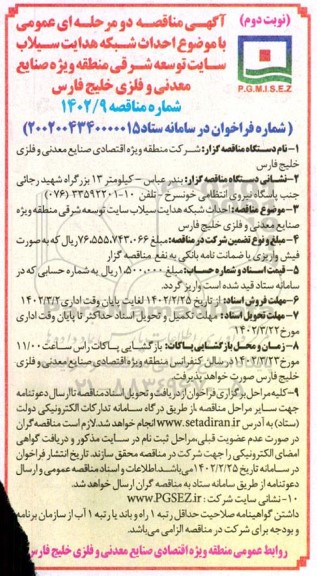 (نوبت دوم)
آگهی مناقصه دو مرحله ای عمومی
با موضوع احداث شبکه هدایت سیلاب
سایت توسعه شرقی منطقه ویژه صنایع
معدنی و فلزی خلیج فارس
P.G.M.I.S.E.Z
شماره مناقصه ۱۴۰۲/۹
( شماره فراخوان در سامانه ستاد ۲۰۰۲۰۰۴۳۴۰۰۰۰۰۱۵)
۱-نام دستگاه مناقصه گزار: شرکت منطقه ویژه اقتصادی صنایع معدنی و فلزی
خلیج فارس
۲-نشانی دستگاه مناقصه گزار: بندرعباس – کیلومتر ۱۳ بزرگراه شهید رجائی
جنب پاسگاه نیروی انتظامی خونسرخ- تلفن ۱۰-۳۳۵۹۲۲۰۱ (۰۷۶)
۳-موضوع مناقصه: احداث شبکه هدایت سیلاب سایت توسعه شرقی منطقه ویژه
صنایع معدنی و فلزی خلیج فارس
۴-مبلغ و نوع تضمین شرکت در مناقصه: مبلغ ۷۶.۵۵۵.۷۴۳.۰۶۶ ریال که به صورت
فیش واریزی یا ضمانت نامه بانکی به نفع مناقصه گزار
۵-قیمت اسناد و شماره حساب: مبلغ ۱.۵۰۰.۰۰۰ ریال به شماره حسابی که در
سامانه ستاد قید شده است واریز گردد.
۶-مهلت فروش اسناد: از تاریخ ۱۴۰۲/۲/۲۵ لغایت پایان وقت اداری ۱۴۰۲/۳/۲
۷-مهلت تحویل اسناد: مهلت تکمیل و تحویل اسناد حداکثر تا پایان وقت اداری
مورخ ۱۴۰۲/۳/۲۲
۸-زمان و محل بازگشایی پاکات: بازگشایی پاکات راس ساعت ۱۱/۰۰
مورخ ۱۴۰۲/۳/۲۳ در سالن کنفرانس منطقه ویژه اقتصادی صنایع معدنی و فلزی
خلیج فارس صورت خواهد پذیرفت.
۹-کلیه مراحل برگزاری فراخوان از دریافت و تحویل اسناد مناقصه تا ارسال دعوتنامه
جهت سایر مراحل مناقصه، از طریق درگاه سامانه تدارکات الکترونیکی دولت
(ستاد) به آدرس www.setadiran.ir انجام خواهد شد. لازم است مناقصه گران
در صورت عدم عضویت قبلی، مراحل ثبت نام در سایت مذکور و دریافت گواهی
امضای الکترونیکی را جهت شرکت در مناقصه محقق سازند. تاریخ انتشار فراخوان
در سامانه تاریخ ۱۴۰۲/۲/۲۵ می باشد. اطلاعات و اسناد مناقصه عمومی و ارسال
دعوتنامه از طریق سامانه ستاد به مناقصه گران ارسال خواهد شد.
۱۰-نشانی سایت شرکت: www.PGSEZ.ir
داشتن گواهینامه صلاحیت حداقل رتبه ۱ راه و باند یا رتبه ۱ آب از سازمان برنامه
و بودجه برای شرکت در مناقصه الزامی می باشد.
روابط عمومی منطقه ویژه اقتصادی صنایع معدنی و فلزی خلیج فارس